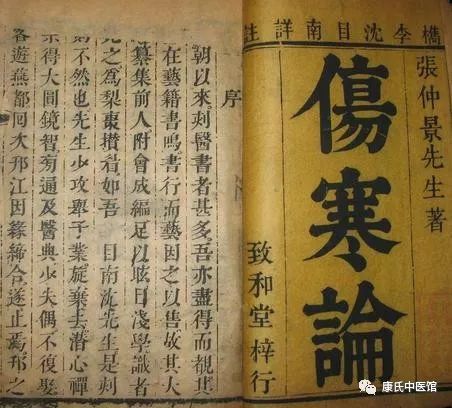 檇李沈目南詳註
張仲景先生著
傷寒論
致和堂梓行
序
朝以來刻醫書者甚多吾亦盡得而觀其
在藝籍書鳴書行而藝因之以售故其人
纂集前人附會成編足以眩目淺學識者
見之為梨棗攢眉如吾 目南沈先生是刻
則不然也先生少攻舉子業旋棄去潛心禪
宗得大圓鏡智旁通及醫典少失偶不復娶
遊燕都回邗江因緣締合遂止焉邗之
康氏中医馆